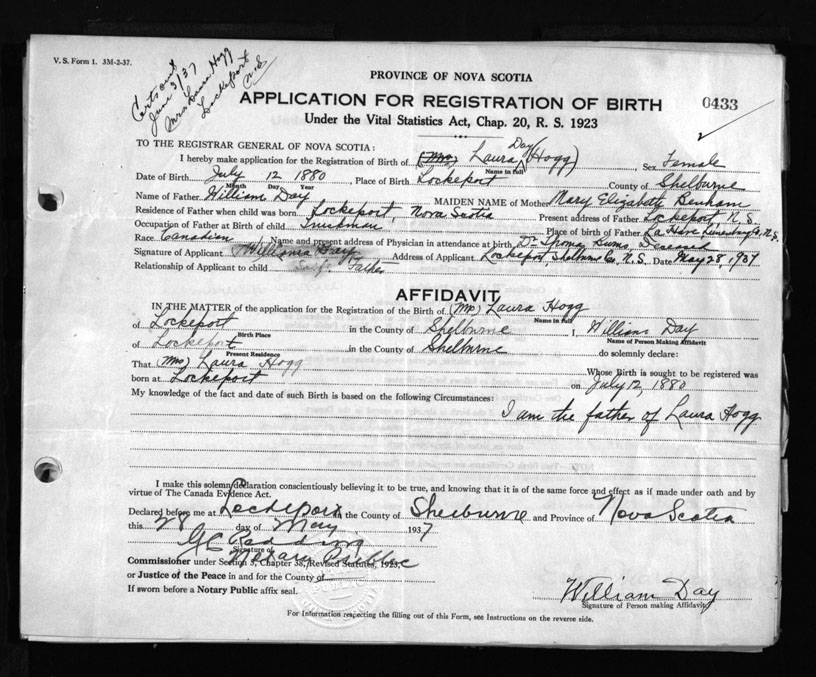 V. S. Form 1. 3M-2-37.
Cert. sent
June 3/37
Mrs Laura Hogg
Lockeport
N.S.
PROVINCE OF NOVA SCOTIA
APPLICATION FOR REGISTRATION OF BIRTH 0433
Under the Vital Statistics Act, Chap. 20, R. S. 1923
TO THE REGISTRAR GENERAL OF NOVA SCOTIA:
I hereby make application for the Registration of Birth of (Mrs) Laura Day (Hogg) Sex Female
Name in full
Date of Birth July 12 1880, Place of Birth Lockeport County of Shelburne
Month Day Year
Name of Father William Day MAIDEN NAME of Mother Mary Elizabeth Benham
Residence of Father when child was born Lockeport, Nova Scotia Present address of Father Lockeport, N. S.
Occupation of Father at Birth of child Truckman Place of Birth of Father La Have, Lunenburg Co, N.S.
Race Canadian Name and present address of Physician in attendance at birth, Dr Thomas Burns, Deceased
Signature of Applicant William Day Address of Applicant Lockeport, Shelburne Co, N. S. Date May 28, 1937
Relationship of Applicant to child Father
AFFIDAVIT
IN THE MATTER of the application for the Registration of the Birth of (Mrs) Laura Hogg
Name in Full
of Lockeport in the County of Shelburne I, William Day
Birth Place Name of Person Making Affidavit
of Lockeport in the County of Shelburne do solemnly declare:
Present Residence
That (Mrs) Laura Hogg Whose Birth is sought to be registered was
born at Lockeport on July 12, 1880
My knowledge of the fact and date of such Birth is based on the following Circumstances:
I am the father of Laura Hogg
I make this solemn Declaration conscientiously believing it to be true, and knowing that it is of the same force and effect as if made under oath and by
virtue of The Canada Evidence Act.
Declared before me at Lockeport in the County of Shelburne and Province of Nova Scotia
this 28 day of May 1937
G C Redding
Signature of
Notary Public
Commissioner under Section 3, Chapter 38, Revised Statutes, 1923,
or Justice of the Peace in and for the County of
If sworn before a Notary Public affix seal.
William Day
Signature of Person making Affidavit
For Information respecting the filling out of this Form, see Instructions on the reverse side.